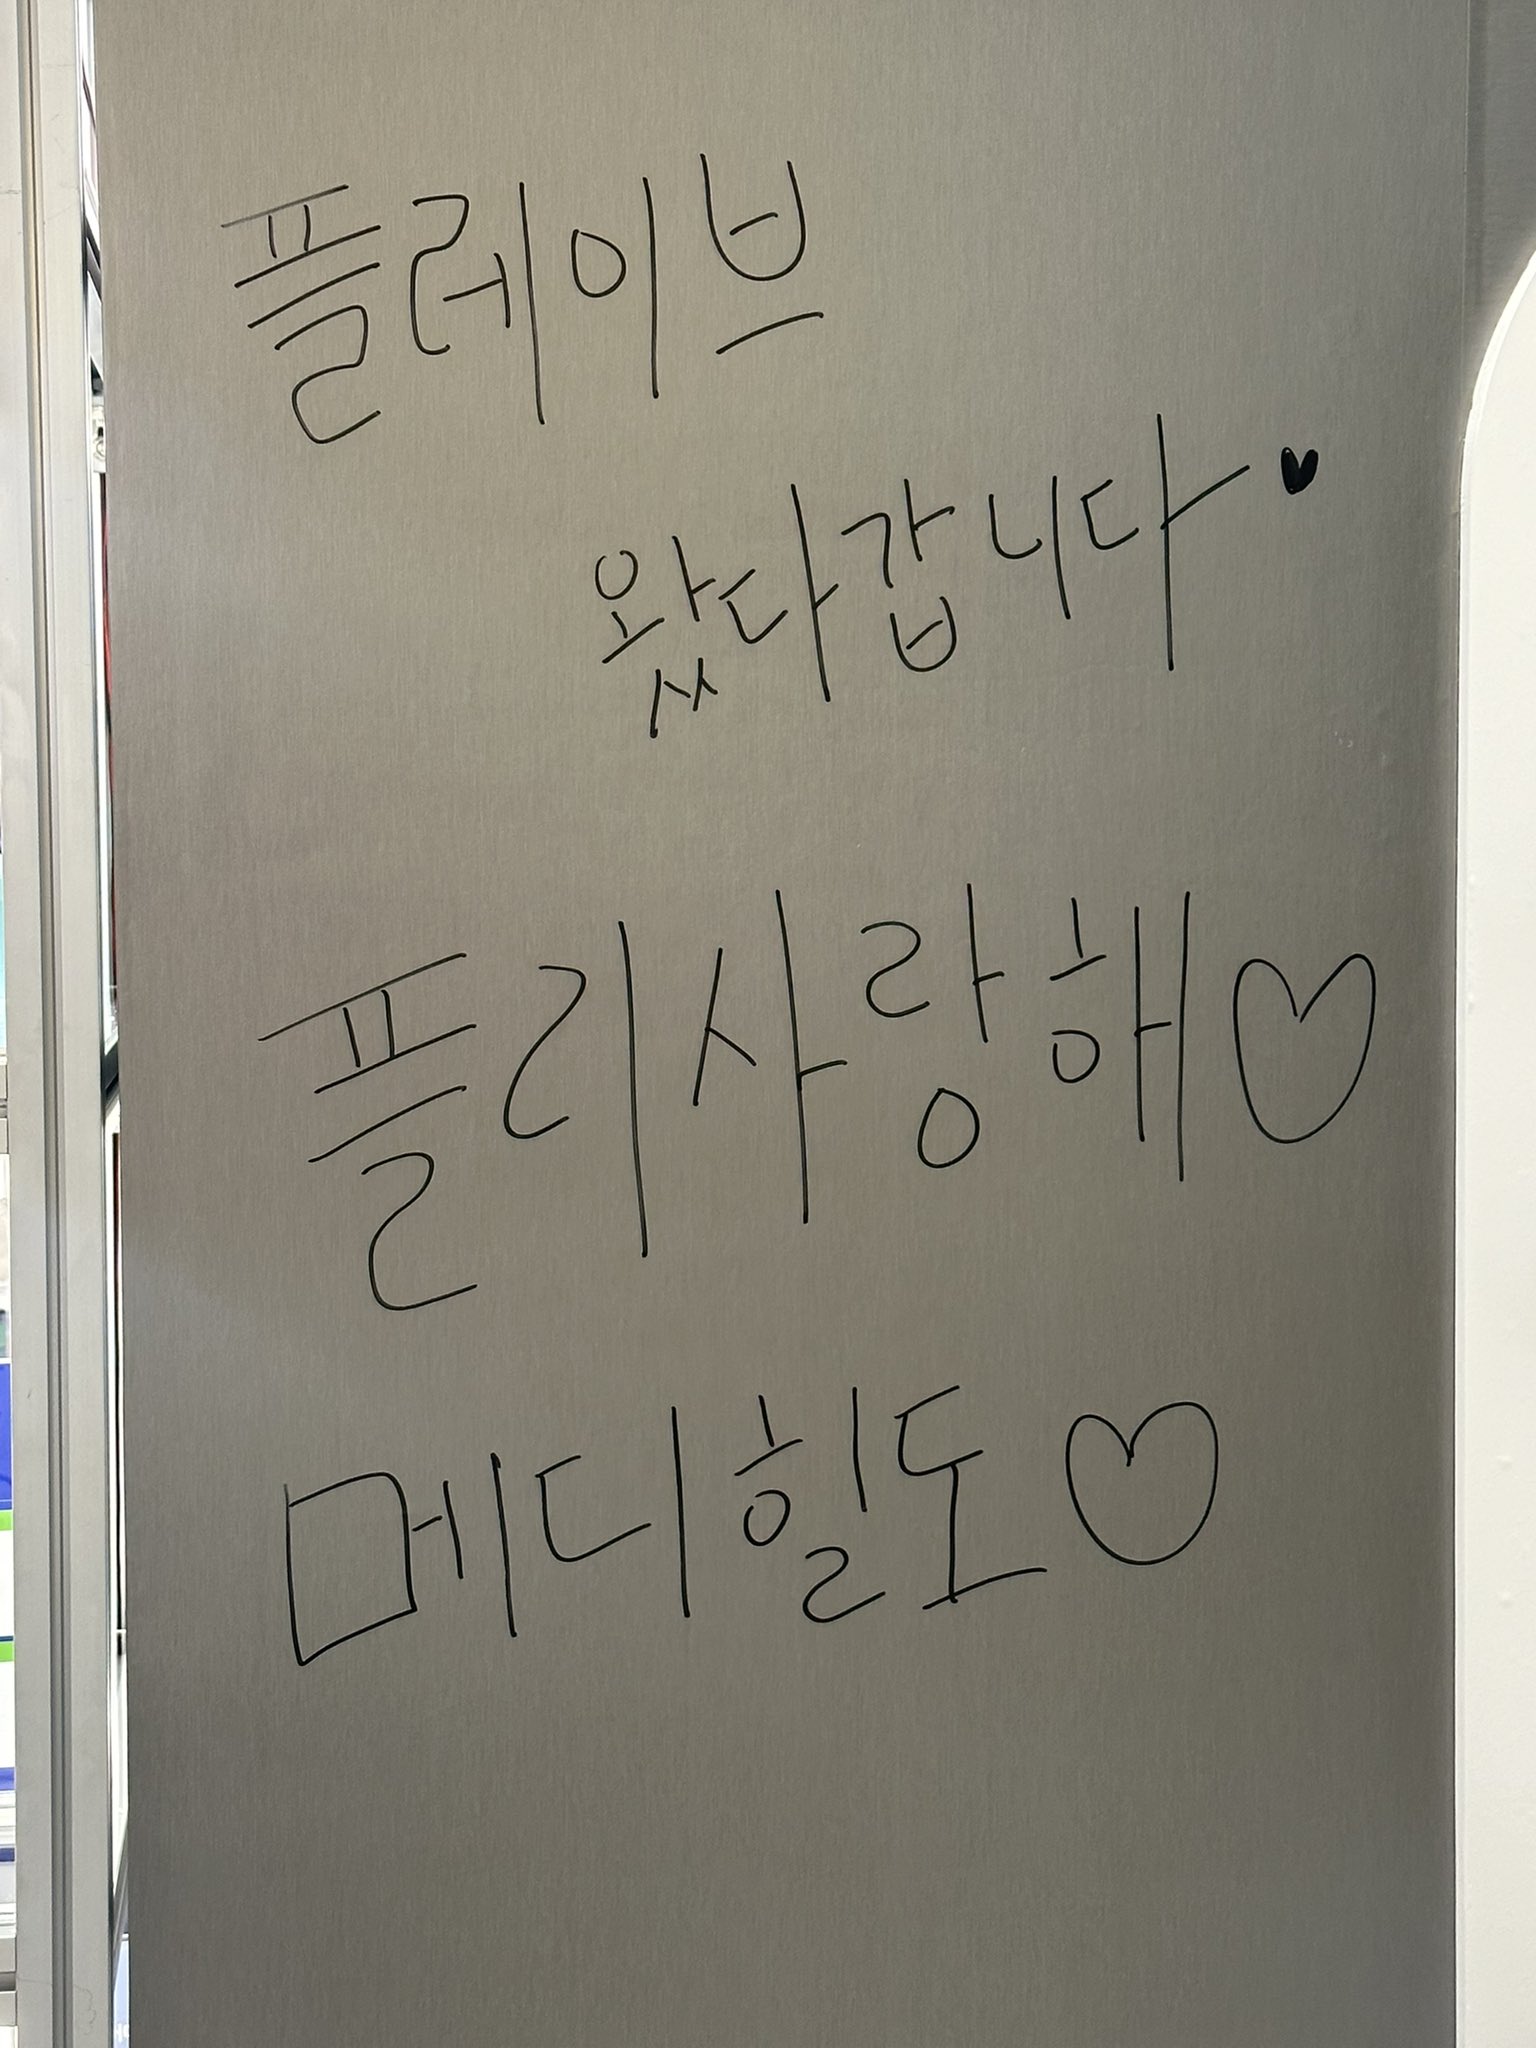 플레이브
왔다갑니다♥
플리사랑해♡
메디힐도♡